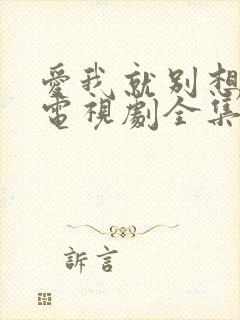 愛我就別想
電視劇全集
訴言